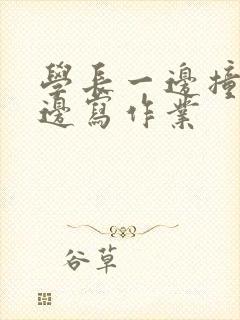 學長一邊撞
邊寫作業
谷草